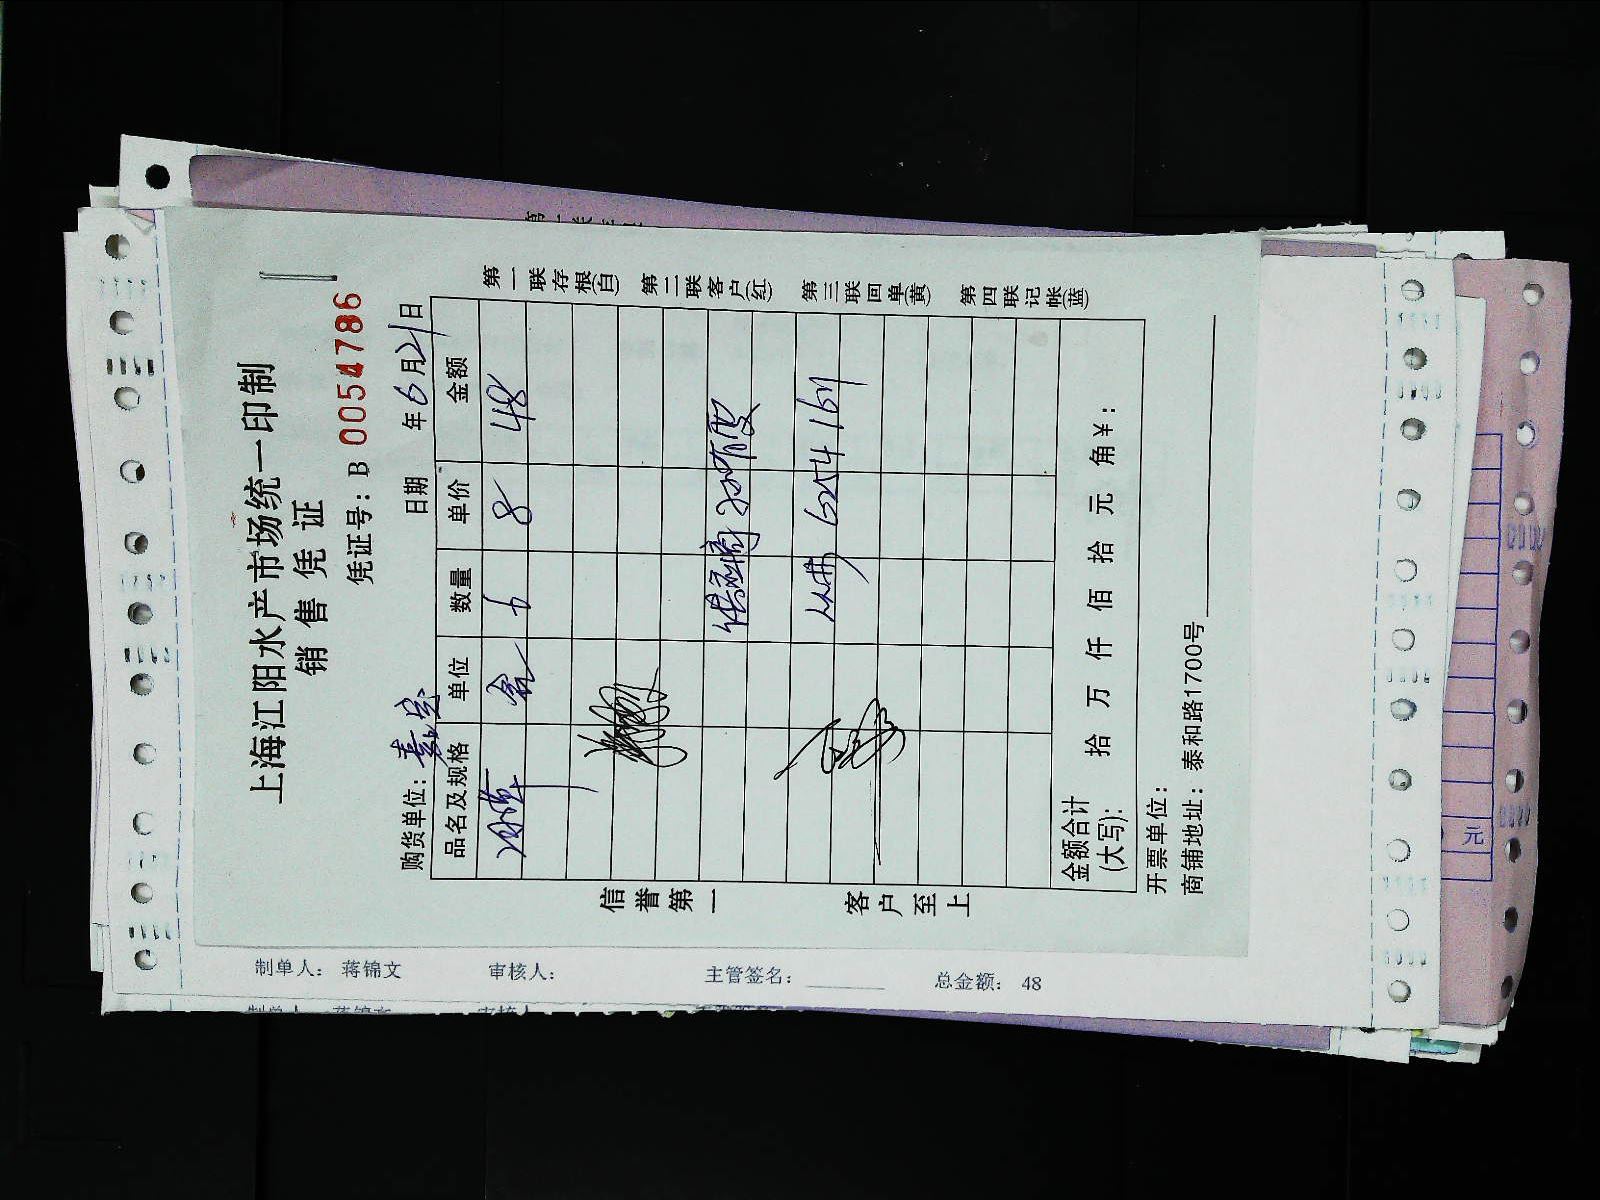 上海江阳水产市场统一印制
销售凭证
凭证号：B 0054786
购货单位： 日期 年6月21日
品名及规格 单位 数量 单价 金额
盒 6 8 48
6254 1641
金额合计(大写)： 拾 万 仟 佰 拾 元 角￥：
开票单位：
商铺地址：泰和路1700号
信誉第一 客户至上
第一联存根(白) 第二联客户(红) 第三联回单(黄) 第四联记帐(蓝)
制单人： 蒋锦文 审核人： 主管签名： 总金额： 48
元